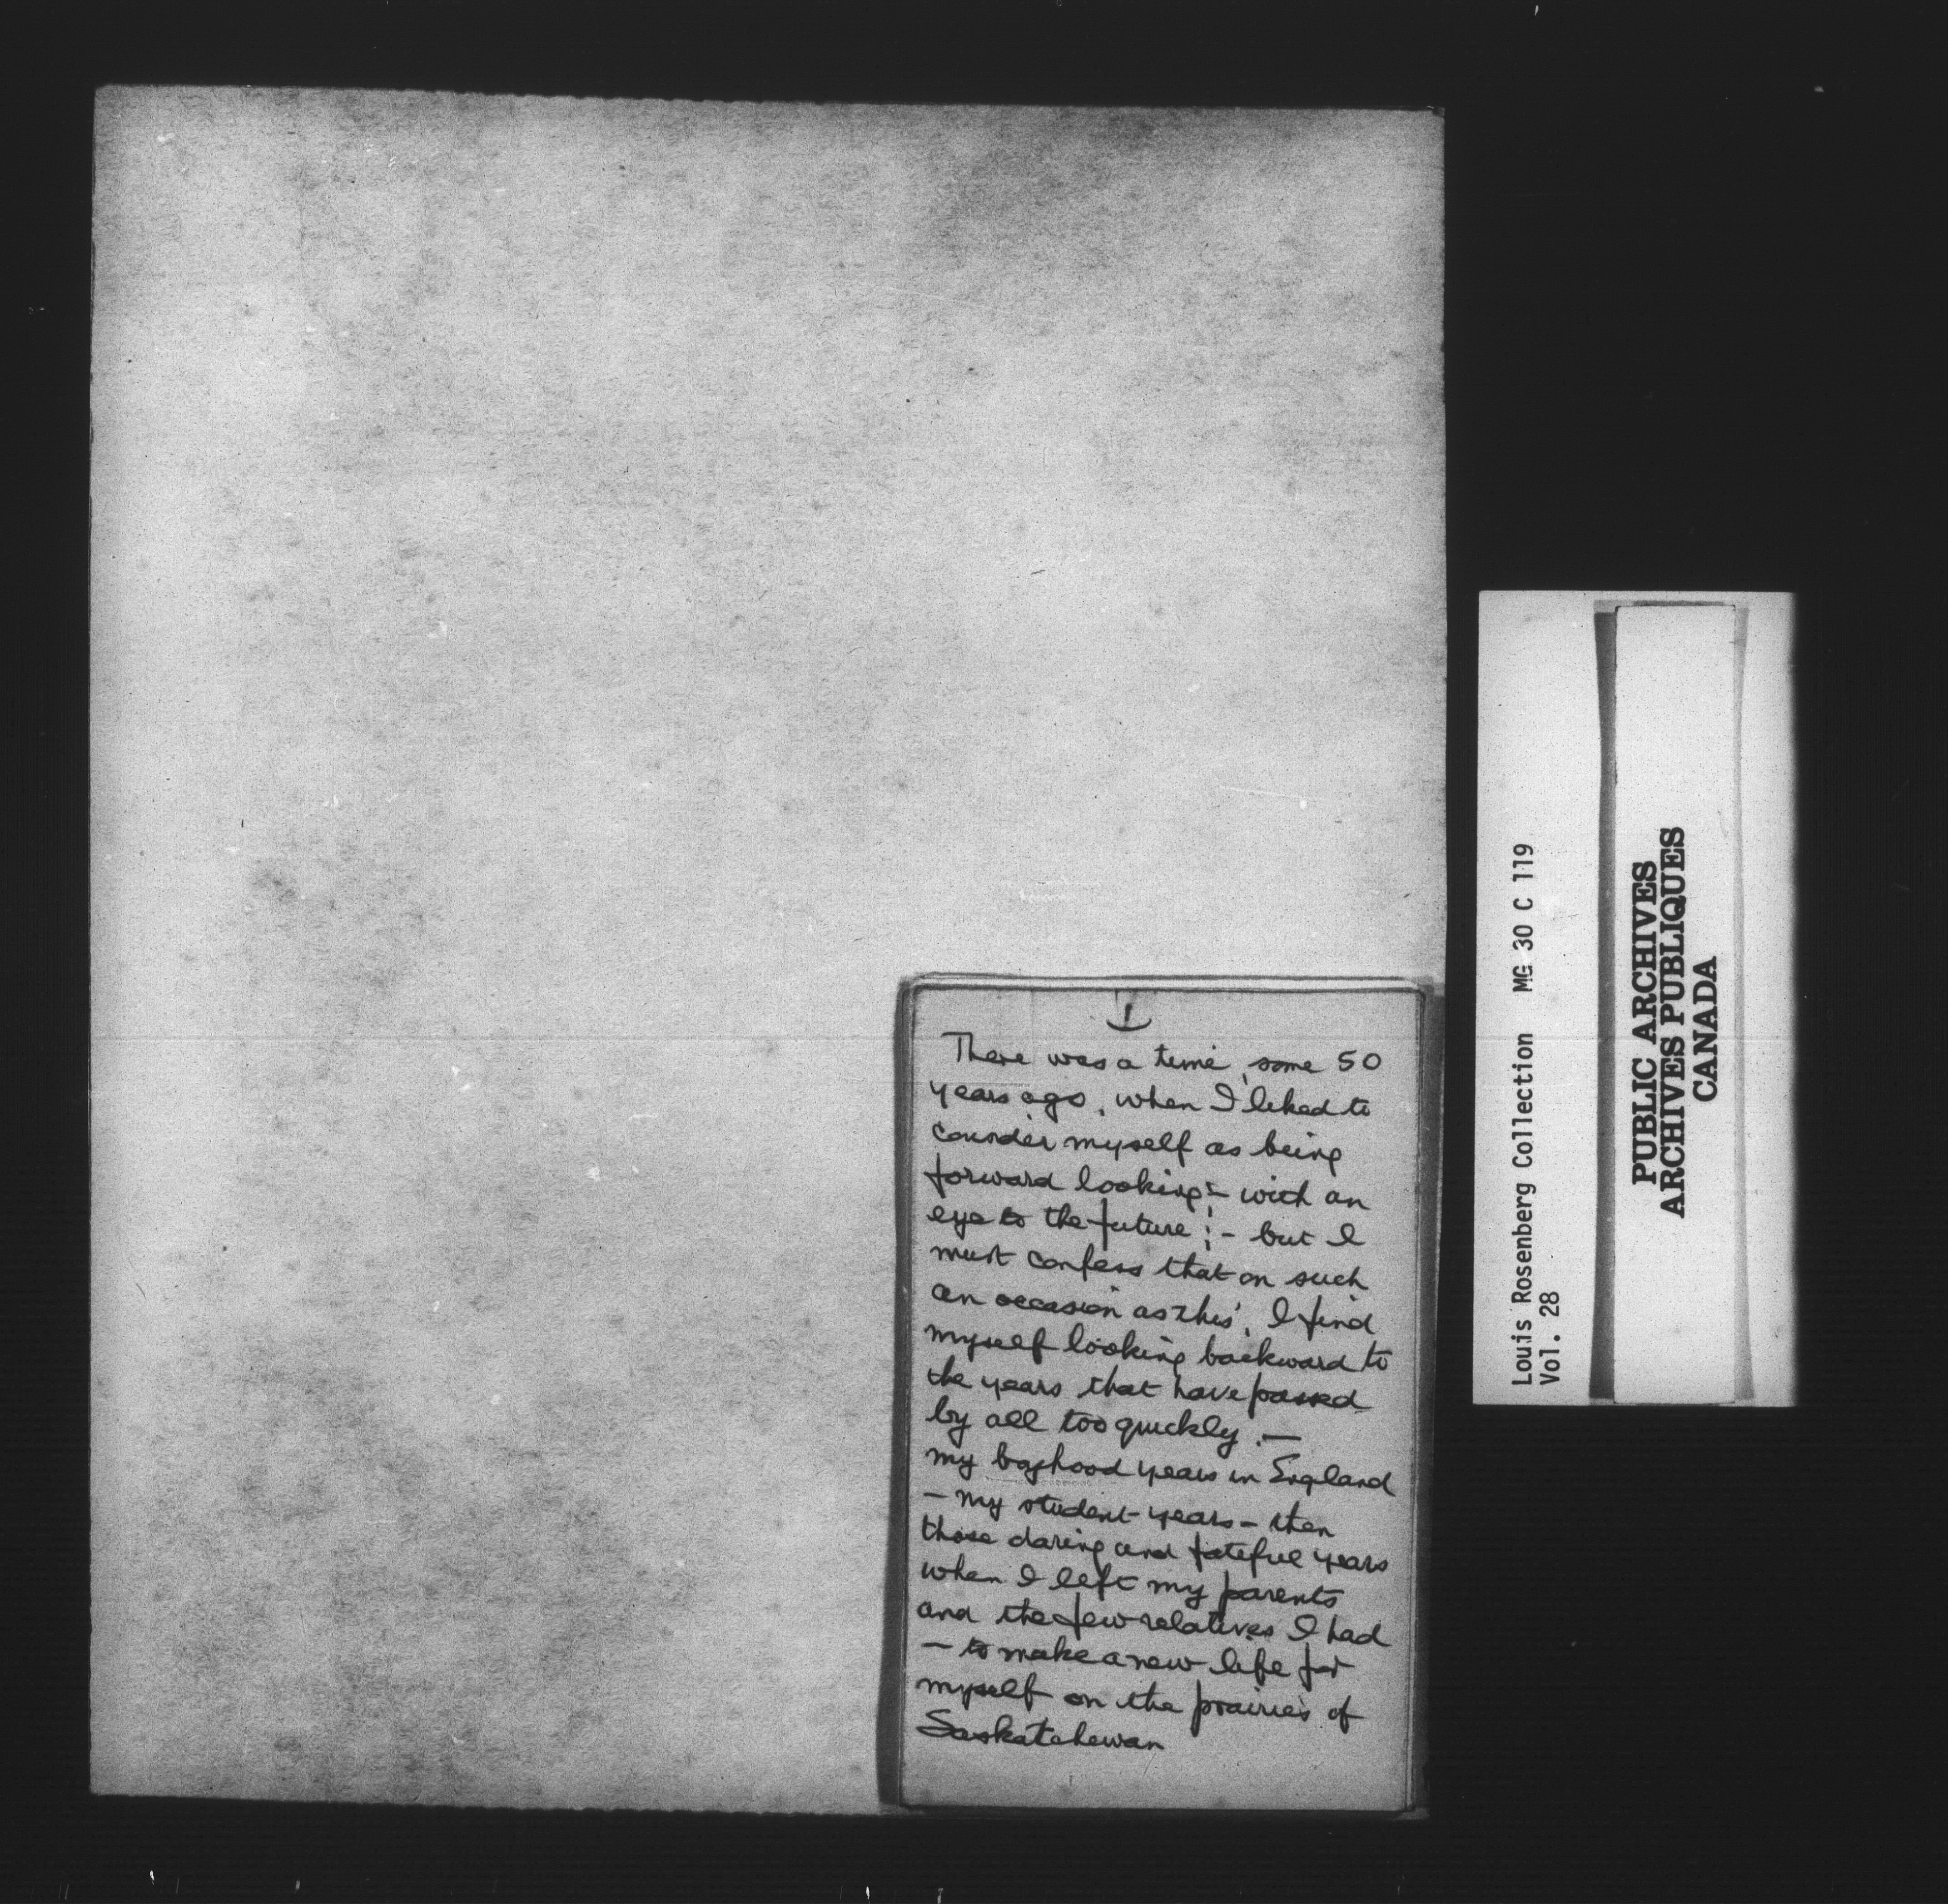 1
There was a time, some 50
years ago, when I liked to
consider myself as being
forward looking - with an
eye to the future ; - but I
must confess that on such
an occasion as this, I find
myself looking backward to
the years that have passed
by all too quickly. —
my boyhood years in England
— my student years — then
those daring and fateful years
when I left my parents
and the few relatives I had
— to make a new life for
myself on the prairies of
Saskatchewan
Louis Rosenberg Collection MG 30 C 119
Vol. 28
PUBLIC ARCHIVES
ARCHIVES PUBLIQUES
CANADA